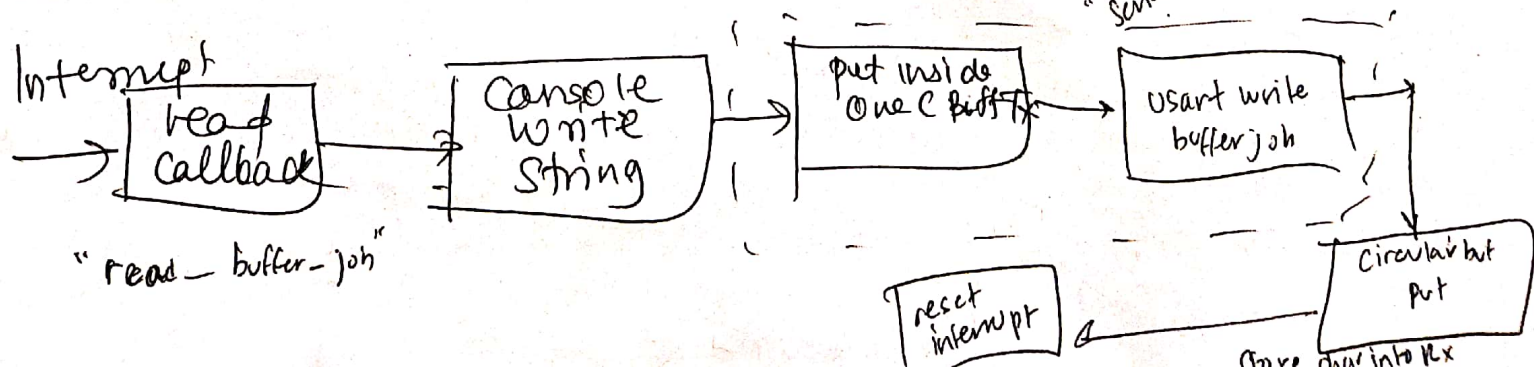 Interrupt
read
callback
"read_buffer_job"
Console
write
string
put inside
one C Buff Tx
usart write
buffer job
circular buf
put
reset
interrupt
char into Rx